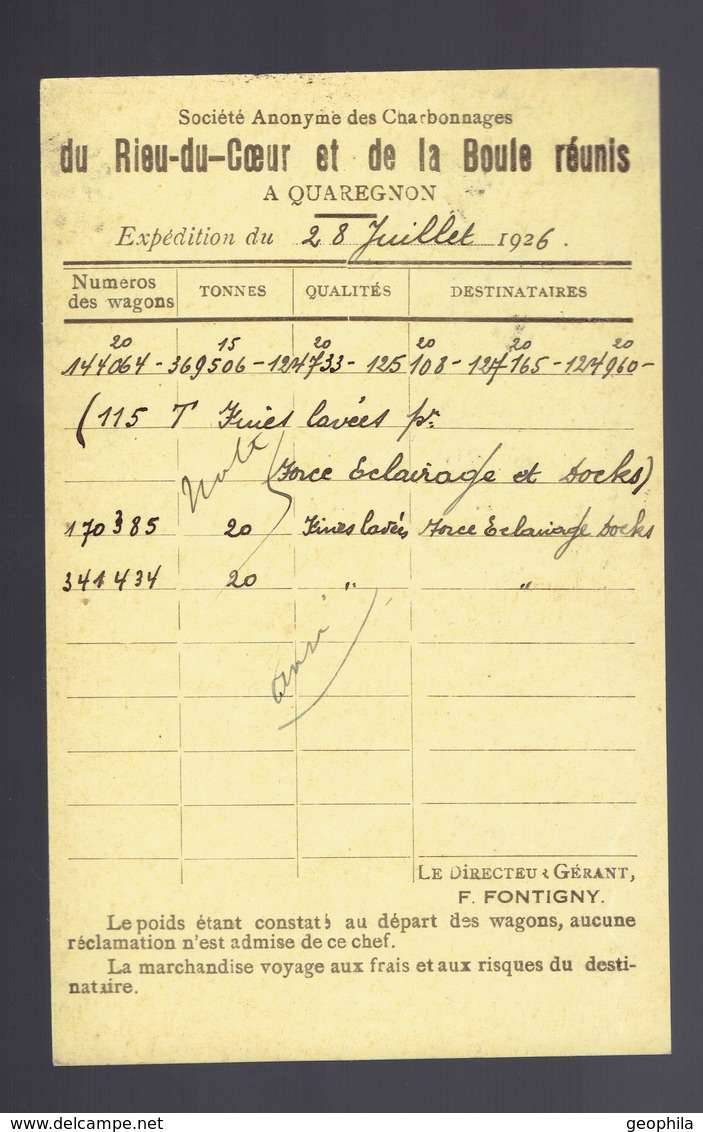 Société Anonyme des Charbonnages
du Rieu-du-Cœur et de la Boule réunis
A QUAREGNON
Expédition du 28 Juillet 1926.
Numeros des wagons TONNES QUALITÉS DESTINATAIRES
20 15 20 20 20 20
144064 - 369506 - 124733 - 125108 - 127165 - 124960 -
(115 T Fines lavées pr
(Force Eclairage et Docks)
170385 20 Fines lavées Force Eclairage Docks
341434 20 " "
LE DIRECTEUR GÉRANT,
F. FONTIGNY.
Le poids étant constaté au départ des wagons, aucune
réclamation n'est admise de ce chef.
La marchandise voyage aux frais et aux risques du desti-
nataire.
www.delcampe.net
geophila